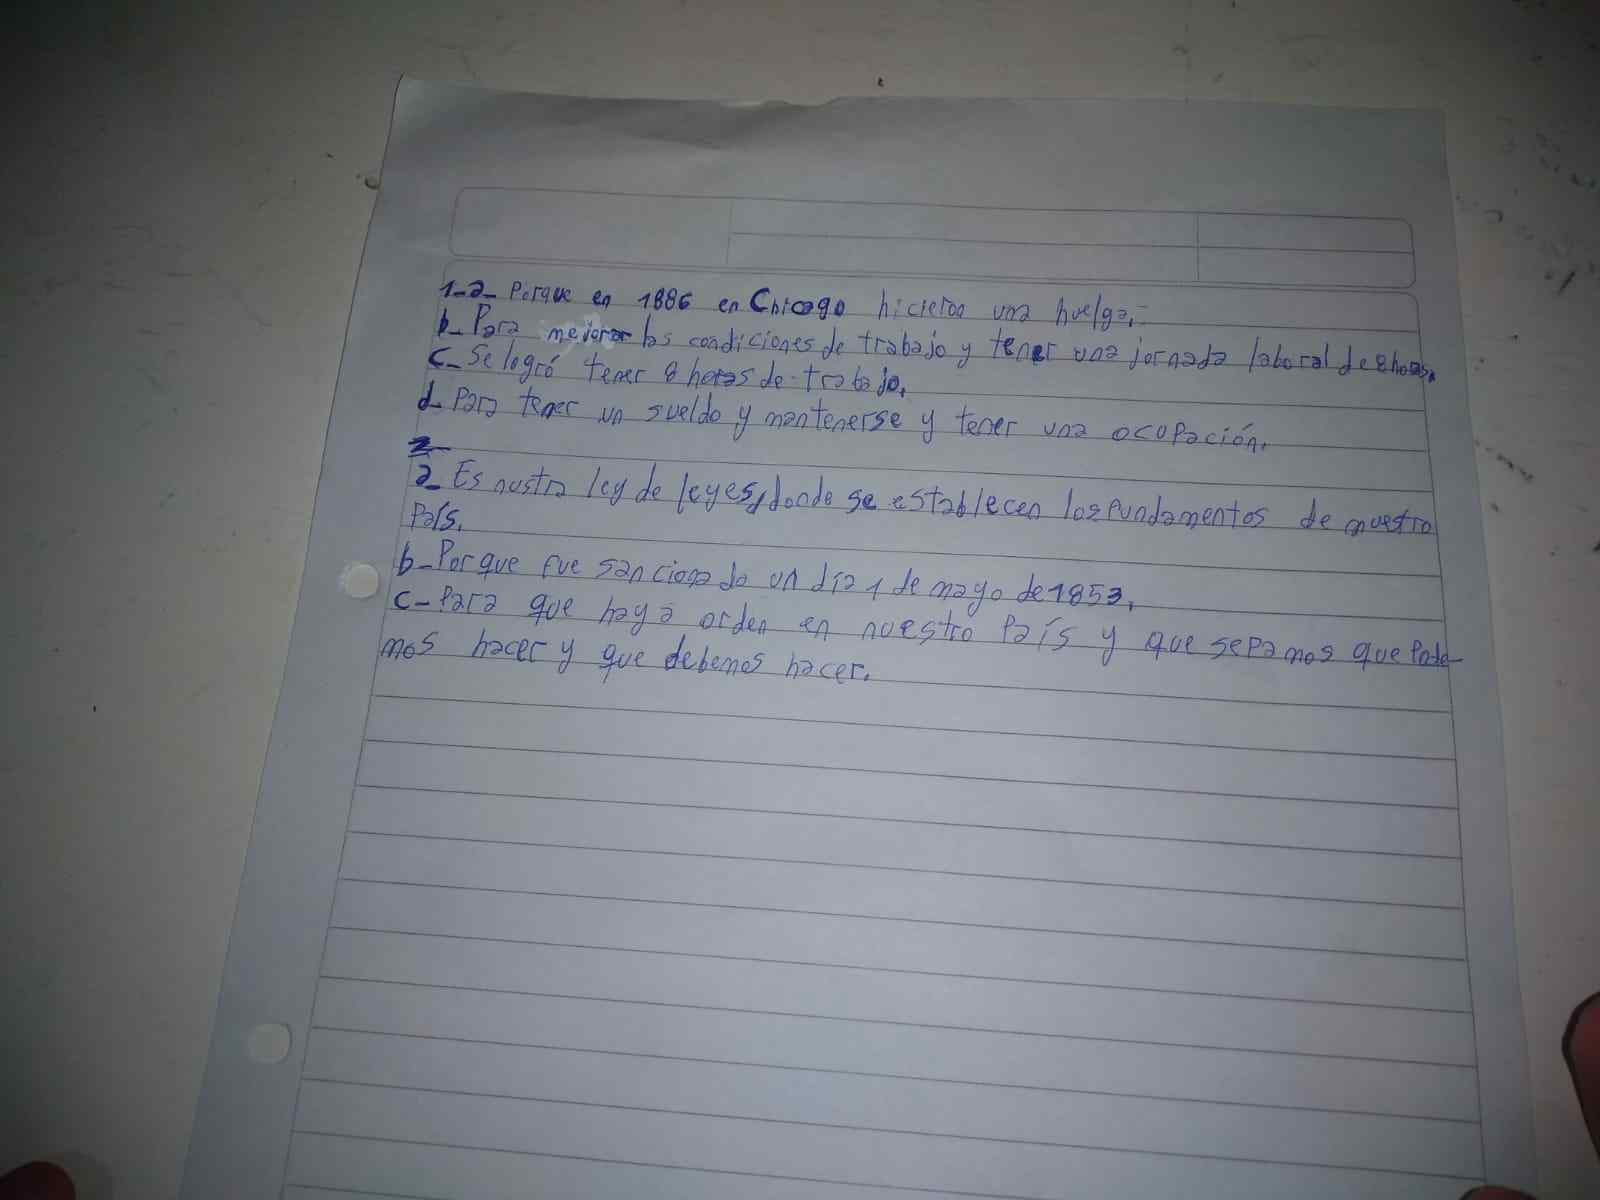 1-a- Porque en 1886 en Chicago hicieron una huelga.-
b- Para mejorar las condiciones de trabajo y tener una jornada laboral de 8 horas.
c- Se logró tener 8 horas de trabajo.
d- Para tener un sueldo y mantenerse y tener una ocupación.
2-
a- Es nustra ley de leyes, donde se establecen los fundamentos de nuestro
País.
b- Porque fue sancionado un día 1 de mayo de 1853.
c- Para que haya orden en nuestro País y que sepamos que Pode-
mos hacer y que debemos hacer.